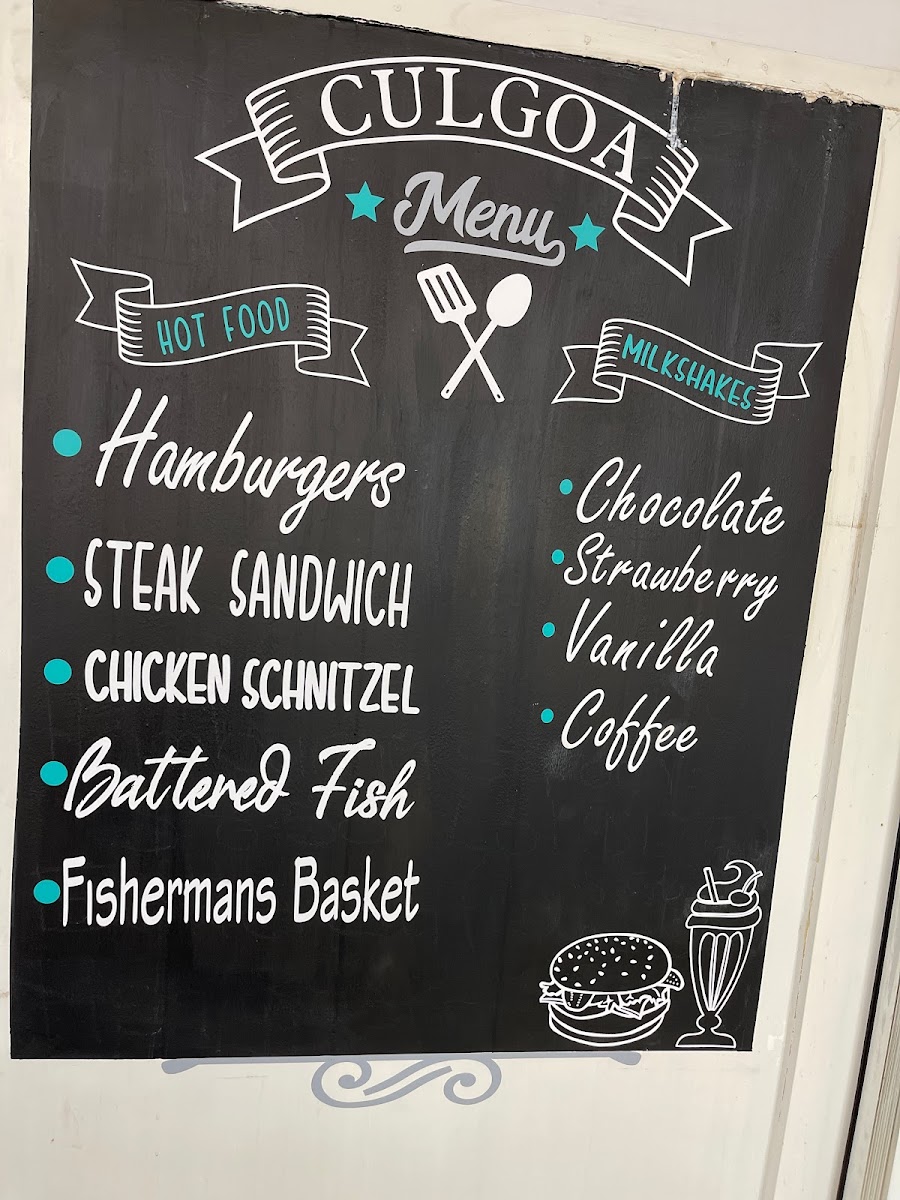 CULGOA
Menu
HOT FOOD
Hamburgers
STEAK SANDWICH
CHICKEN SCHNITZEL
Battered Fish
Fishermans Basket
MILKSHAKES
Chocolate
Strawberry
Vanilla
Coffee